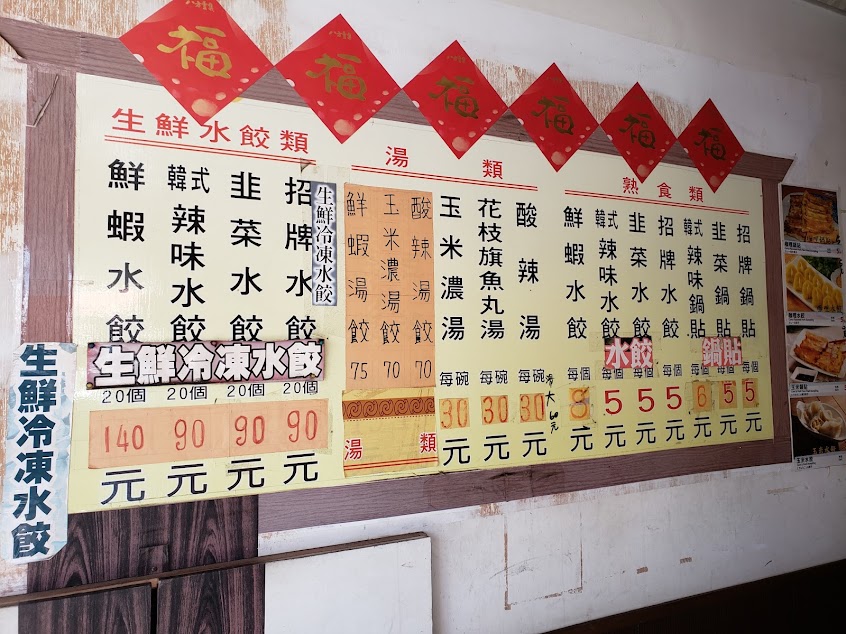 福
福
福
福
福
福
生鮮水餃類
湯類
熟食類
招牌鍋貼
韭菜鍋貼
韓式辣味鍋貼
招牌水餃
韭菜水餃
韓式辣味水餃
鮮蝦水餃
鍋貼
水餃
每個 5 元
每個 5 元
每個 6 元
每個 5 元
每個 5 元
每個 5 元
每個 8 元
酸辣湯
花枝旗魚丸湯
玉米濃湯
每碗 30 元
湯大60元
每碗 30 元
每碗 30 元
酸辣湯餃 70
玉米濃湯餃 70
鮮蝦湯餃 75
湯類
生鮮冷凍水餃
招牌水餃
韭菜水餃
韓式辣味水餃
鮮蝦水餃
生鮮冷凍水餃
20個 90 元
20個 90 元
20個 90 元
20個 140 元
生鮮冷凍水餃